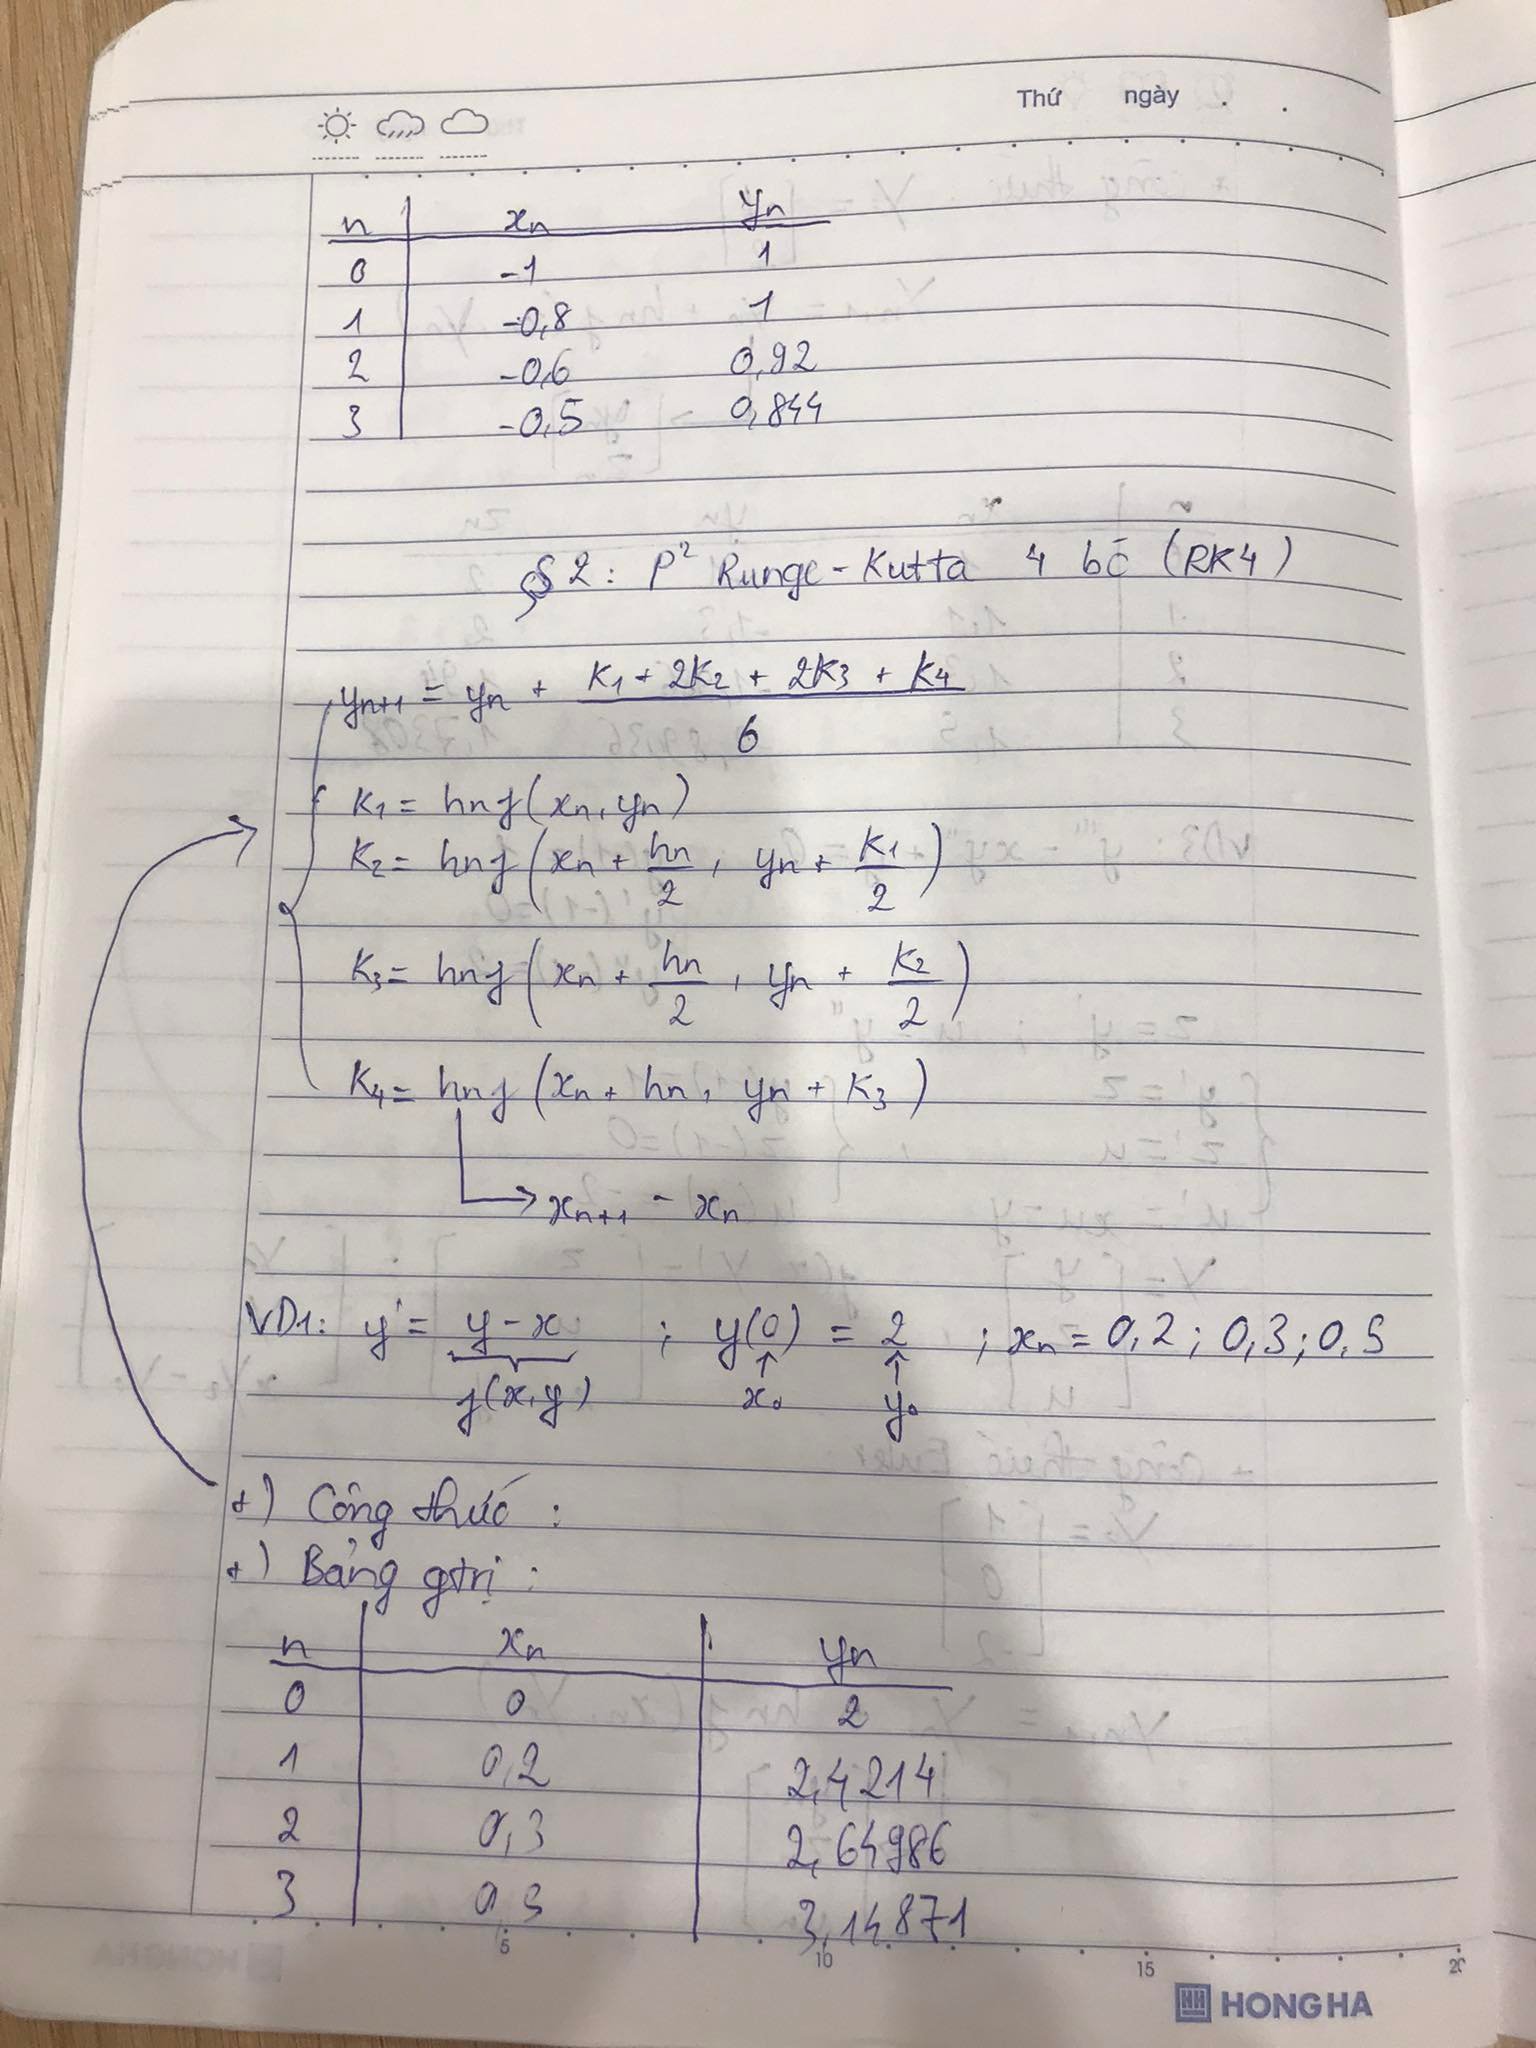 Thứ ngày . .
n xₙ yₙ
0 -1 1
1 -0,8 1
2 -0,6 0,92
3 -0,5 0,844
§2: P² Runge-Kutta 4 bć (RK4)
yₙ₊₁ = yₙ + (K₁ + 2K₂ + 2K₃ + K₄)/6
K₁ = hₙf(xₙ, yₙ)
K₂ = hₙf(xₙ + hₙ/2, yₙ + K₁/2)
K₃ = hₙf(xₙ + hₙ/2, yₙ + K₂/2)
K₄ = hₙf(xₙ + hₙ, yₙ + K₃)
xₙ₊₁ - xₙ
VD1: y' = y - x ; y(0) = 2 ; xₙ = 0,2 ; 0,3 ; 0,5
f(x,y) x₀ y₀
+) Công thức :
+) Bảng gtrị :
n xₙ yₙ
0 0 2
1 0,2 2,4214
2 0,3 2,64986
3 0,5 3,14871
5 10 15 20
HONG HA